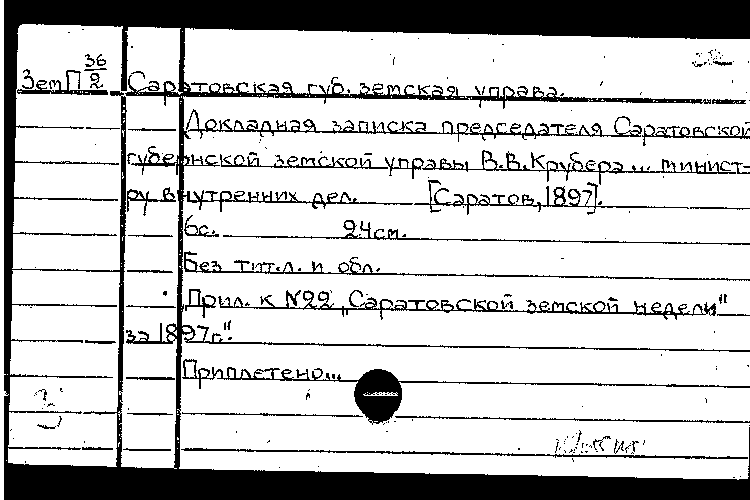 ЗемП 36/2 Саратовская губ. земская управа.
Докладная записка председателя Саратовской
губернской земской управы В.В.Крубера... минист-
ру внутренних дел. [Саратов, 1897].
6с. 24см.
Без тит.л. и обл.
"Прил. к №22 „Саратовской земской недели"
за 1897г".
Приплетено...